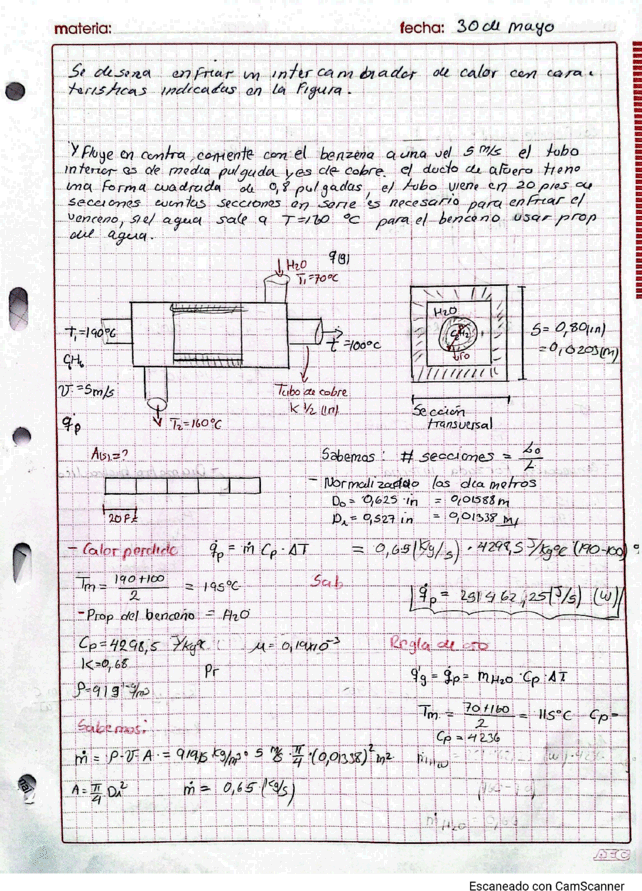 materia:
fecha: 30 de mayo
Se desena enfriar un intercambiador de calor con cara-
teristicas indicadas en la Figura.
Y Fluye en contra, corriente con el benzena a una vel 5 m/s el tubo
interior es de media pulgada y es de cobre. el ducto de afuera tiene
una forma cuadrada de 0,8 pulgadas, el tubo viene en 20 pies de
secciones cuantas secciones en serie es necesario para enfriar el
venceno, si el agua sale a T=160 °C para el benceno usar prop
del agua.
H2O
T1=70°C
T1=190°C
C6H6
V=5m/s
q̇p
t=100°C
T2=160°C
Tubo de cobre
K 1/2 (in)
H2O
ro
S=0,80(in)
=0,0203(m)
Sección
transversal
A(s)=?
20 Ft
Sabemos: # secciones = Lo/L
- Normalizando los diametros
Do = 0,625 in = 0,01588 m
Di = 0,527 in = 0,01338 m
- Calor perdido q̇p = ṁ Cp · ΔT = 0,65 (Kg/s) · 4298,5 J/kg°C (190-100) °
Tm = 190+100/2 = 195°C
Sab
q̇p = 251462,25 (J/s) (W)
- Prop del benceno = H2O
Cp = 4298,5 J/kg°C
μ = 0,19x10⁻³
K=0,68
Pr
Regla de oro
q̇g = q̇p = mH2O · Cp · ΔT
Tm = 70+160/2 = 115°C Cp=
Cp = 4236
Sabemos:
ṁ = ρ·V·A = 919,5 kg/m³ · 5 m/s · π/4 · (0,01338)² m²
A = π/4 Di²
ṁ = 0,65 (Kg/s)
Escaneado con CamScanner